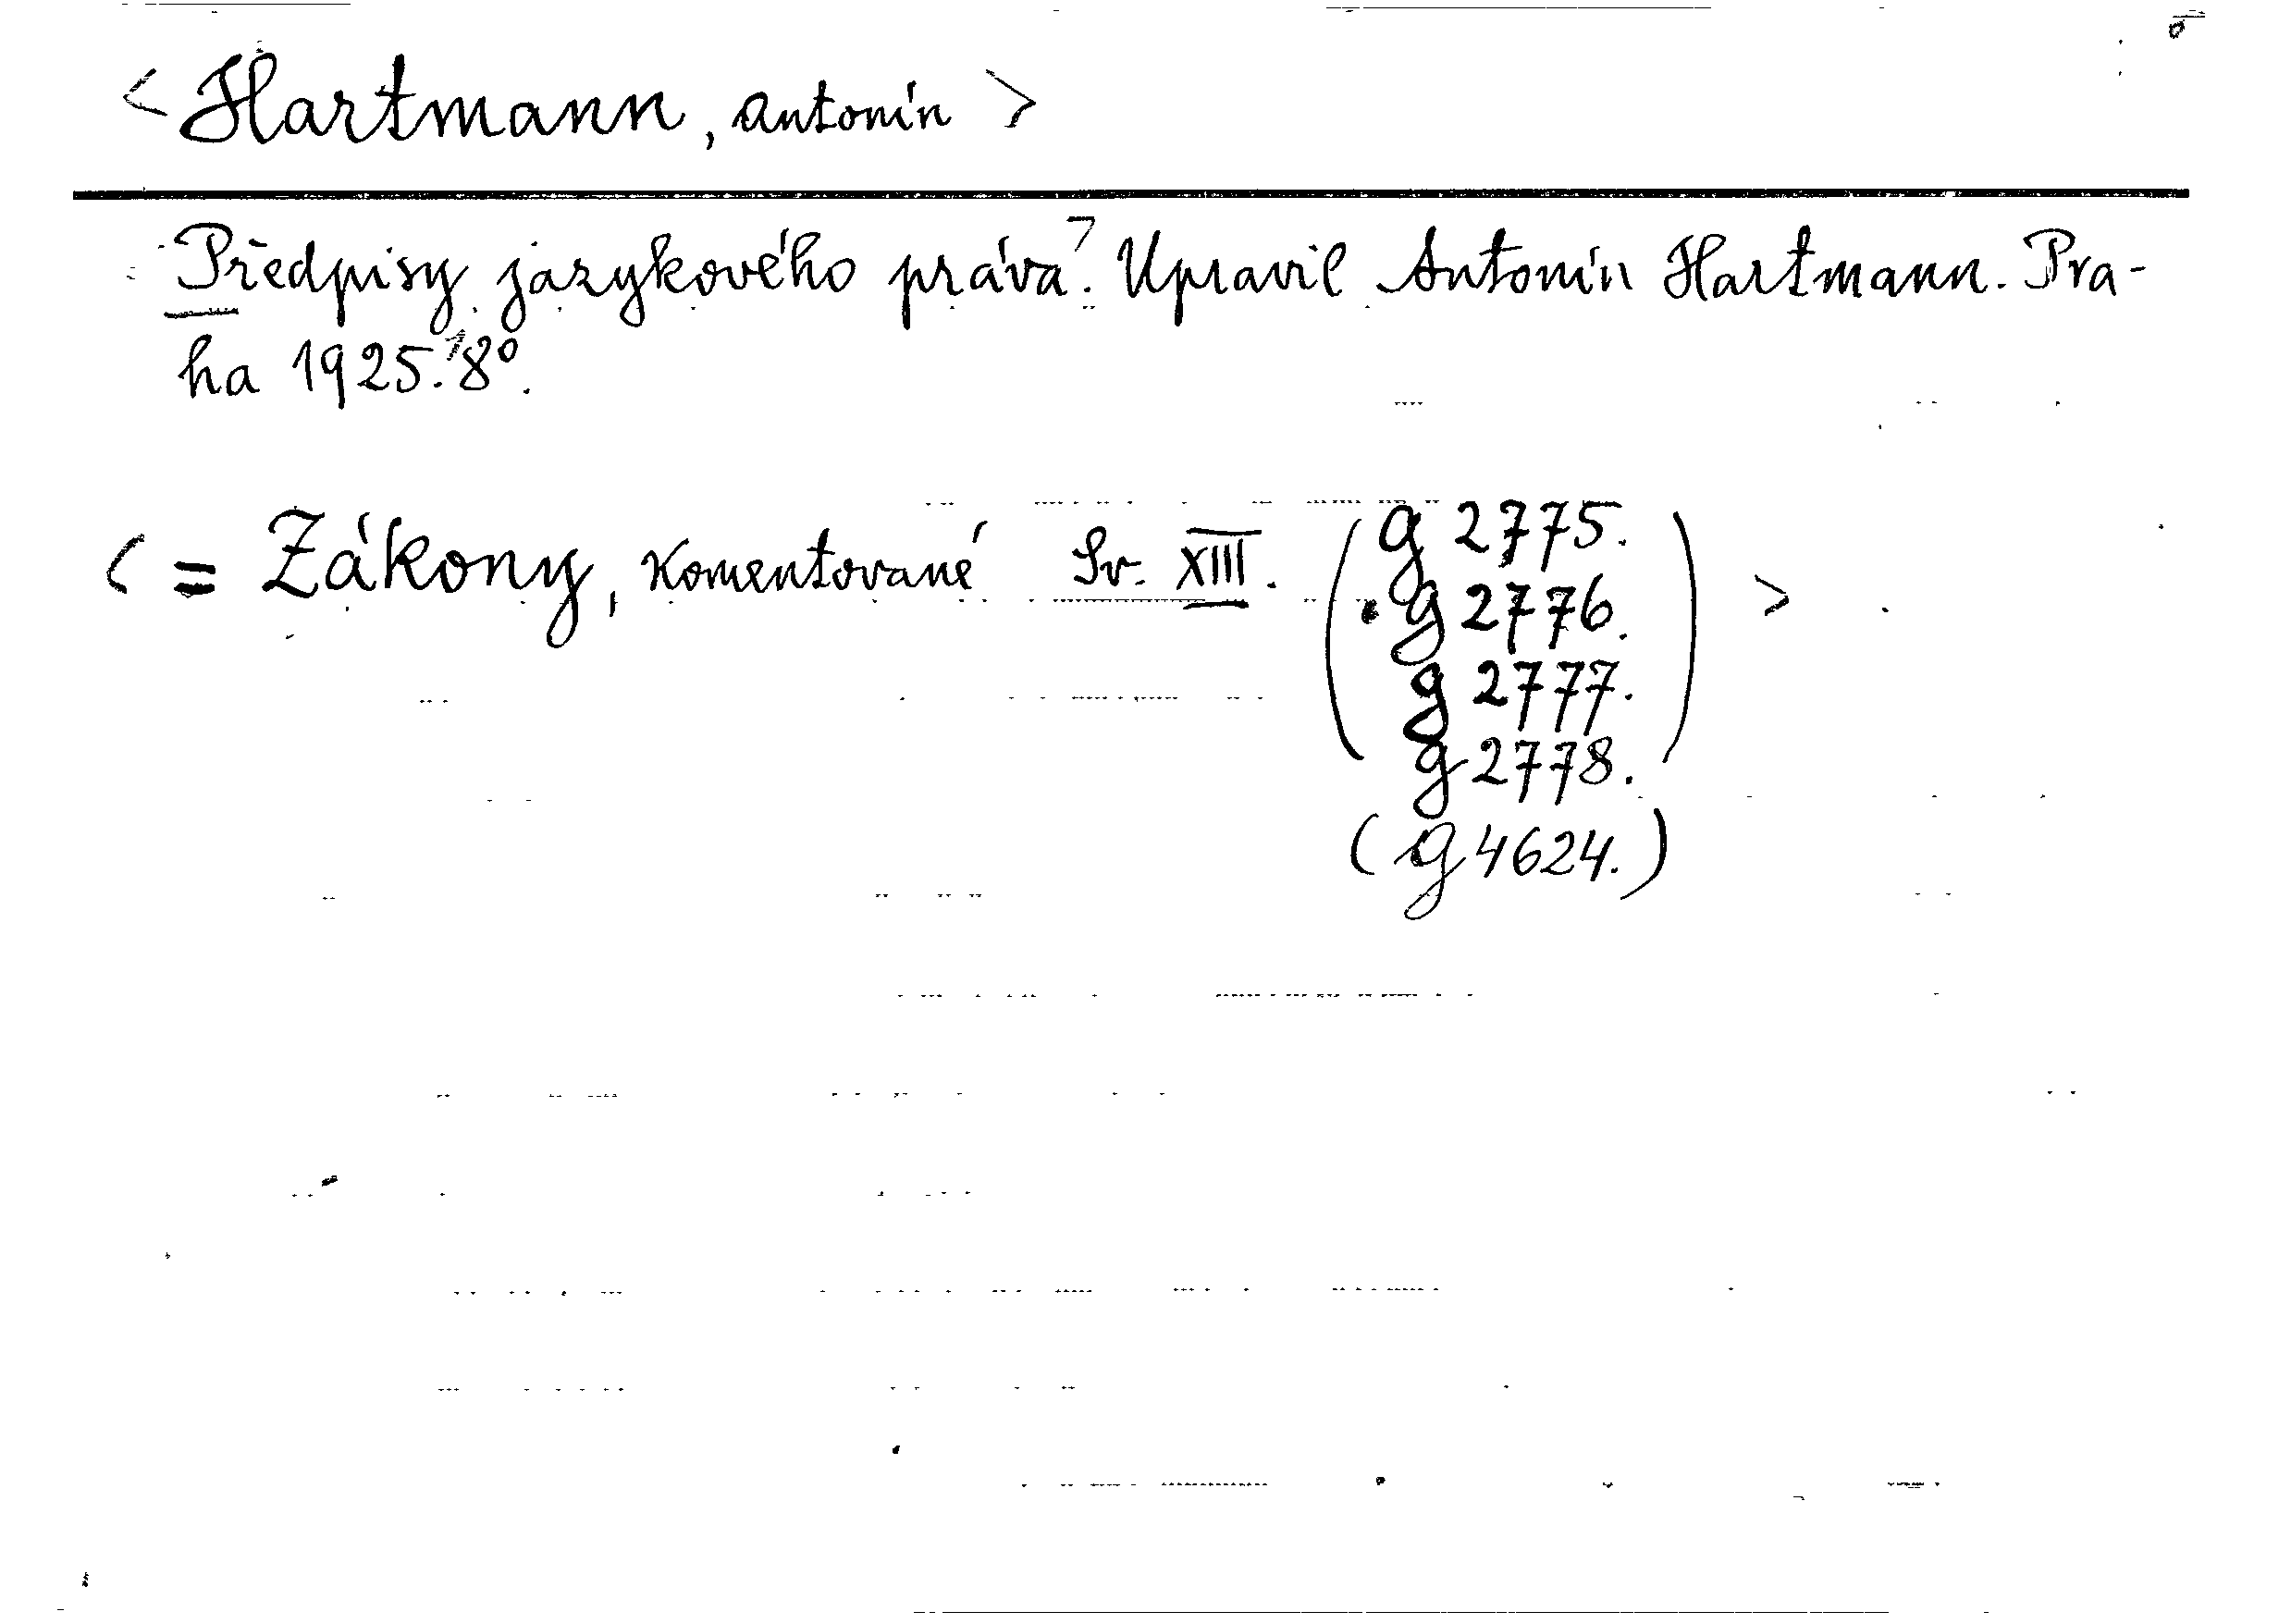 < Hartmann, Antonín >
Předpisy jazykového práva. Upravil Antonín Hartmann. Pra-
ha 1925. 8°.
< = Zákony, komentované Sv. XIII. (g 2775.
g 2776.
g 2777.
g 2778.) >
(g 4624.)